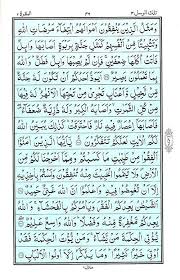 تلك الرسل ٣ ٣٩ البقرة ٢
وَمَثَلُ الَّذِينَ يُنْفِقُونَ أَمْوَالَهُمُ ابْتِغَاءَ مَرْضَاتِ اللَّهِ
وَتَثْبِيتًا مِنْ أَنْفُسِهِمْ كَمَثَلِ جَنَّةٍ بِرَبْوَةٍ أَصَابَهَا وَابِلٌ
فَآتَتْ أُكُلَهَا ضِعْفَيْنِ فَإِنْ لَمْ يُصِبْهَا وَابِلٌ فَطَلٌّ وَاللَّهُ
بِمَا تَعْمَلُونَ بَصِيرٌ أَيَوَدُّ أَحَدُكُمْ أَنْ تَكُونَ لَهُ جَنَّةٌ
مِنْ نَخِيلٍ وَأَعْنَابٍ تَجْرِي مِنْ تَحْتِهَا الْأَنْهَارُ لَهُ فِيهَا
مِنْ كُلِّ الثَّمَرَاتِ وَأَصَابَهُ الْكِبَرُ وَلَهُ ذُرِّيَّةٌ ضُعَفَاءُ
فَأَصَابَهَا إِعْصَارٌ فِيهِ نَارٌ فَاحْتَرَقَتْ كَذَلِكَ يُبَيِّنُ اللَّهُ
لَكُمُ الْآيَاتِ لَعَلَّكُمْ تَتَفَكَّرُونَ يَا أَيُّهَا الَّذِينَ آمَنُوا
أَنْفِقُوا مِنْ طَيِّبَاتِ مَا كَسَبْتُمْ وَمِمَّا أَخْرَجْنَا لَكُمْ
مِنَ الْأَرْضِ وَلَا تَيَمَّمُوا الْخَبِيثَ مِنْهُ تُنْفِقُونَ وَلَسْتُمْ بِآخِذِيهِ
إِلَّا أَنْ تُغْمِضُوا فِيهِ وَاعْلَمُوا أَنَّ اللَّهَ غَنِيٌّ حَمِيدٌ
الشَّيْطَانُ يَعِدُكُمُ الْفَقْرَ وَيَأْمُرُكُمْ بِالْفَحْشَاءِ وَاللَّهُ
يَعِدُكُمْ مَغْفِرَةً مِنْهُ وَفَضْلًا وَاللَّهُ وَاسِعٌ عَلِيمٌ
يُؤْتِي الْحِكْمَةَ مَنْ يَشَاءُ وَمَنْ يُؤْتَ الْحِكْمَةَ فَقَدْ